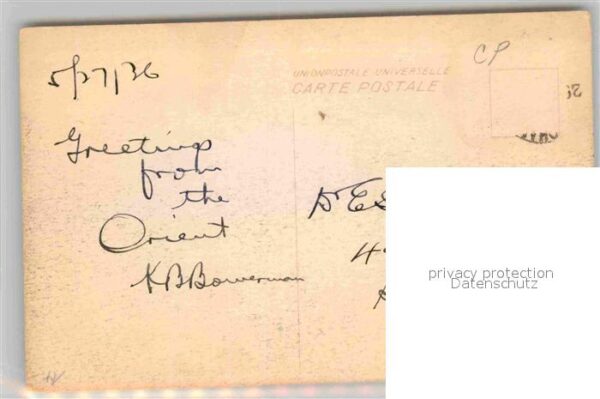 5/27/36
CP
UNIONPOSTALE UNIVERSELLE
CARTE POSTALE
Greetings
from
the
Orient
K B Bowerman
Dr E
4
privacy protection
Datenschutz